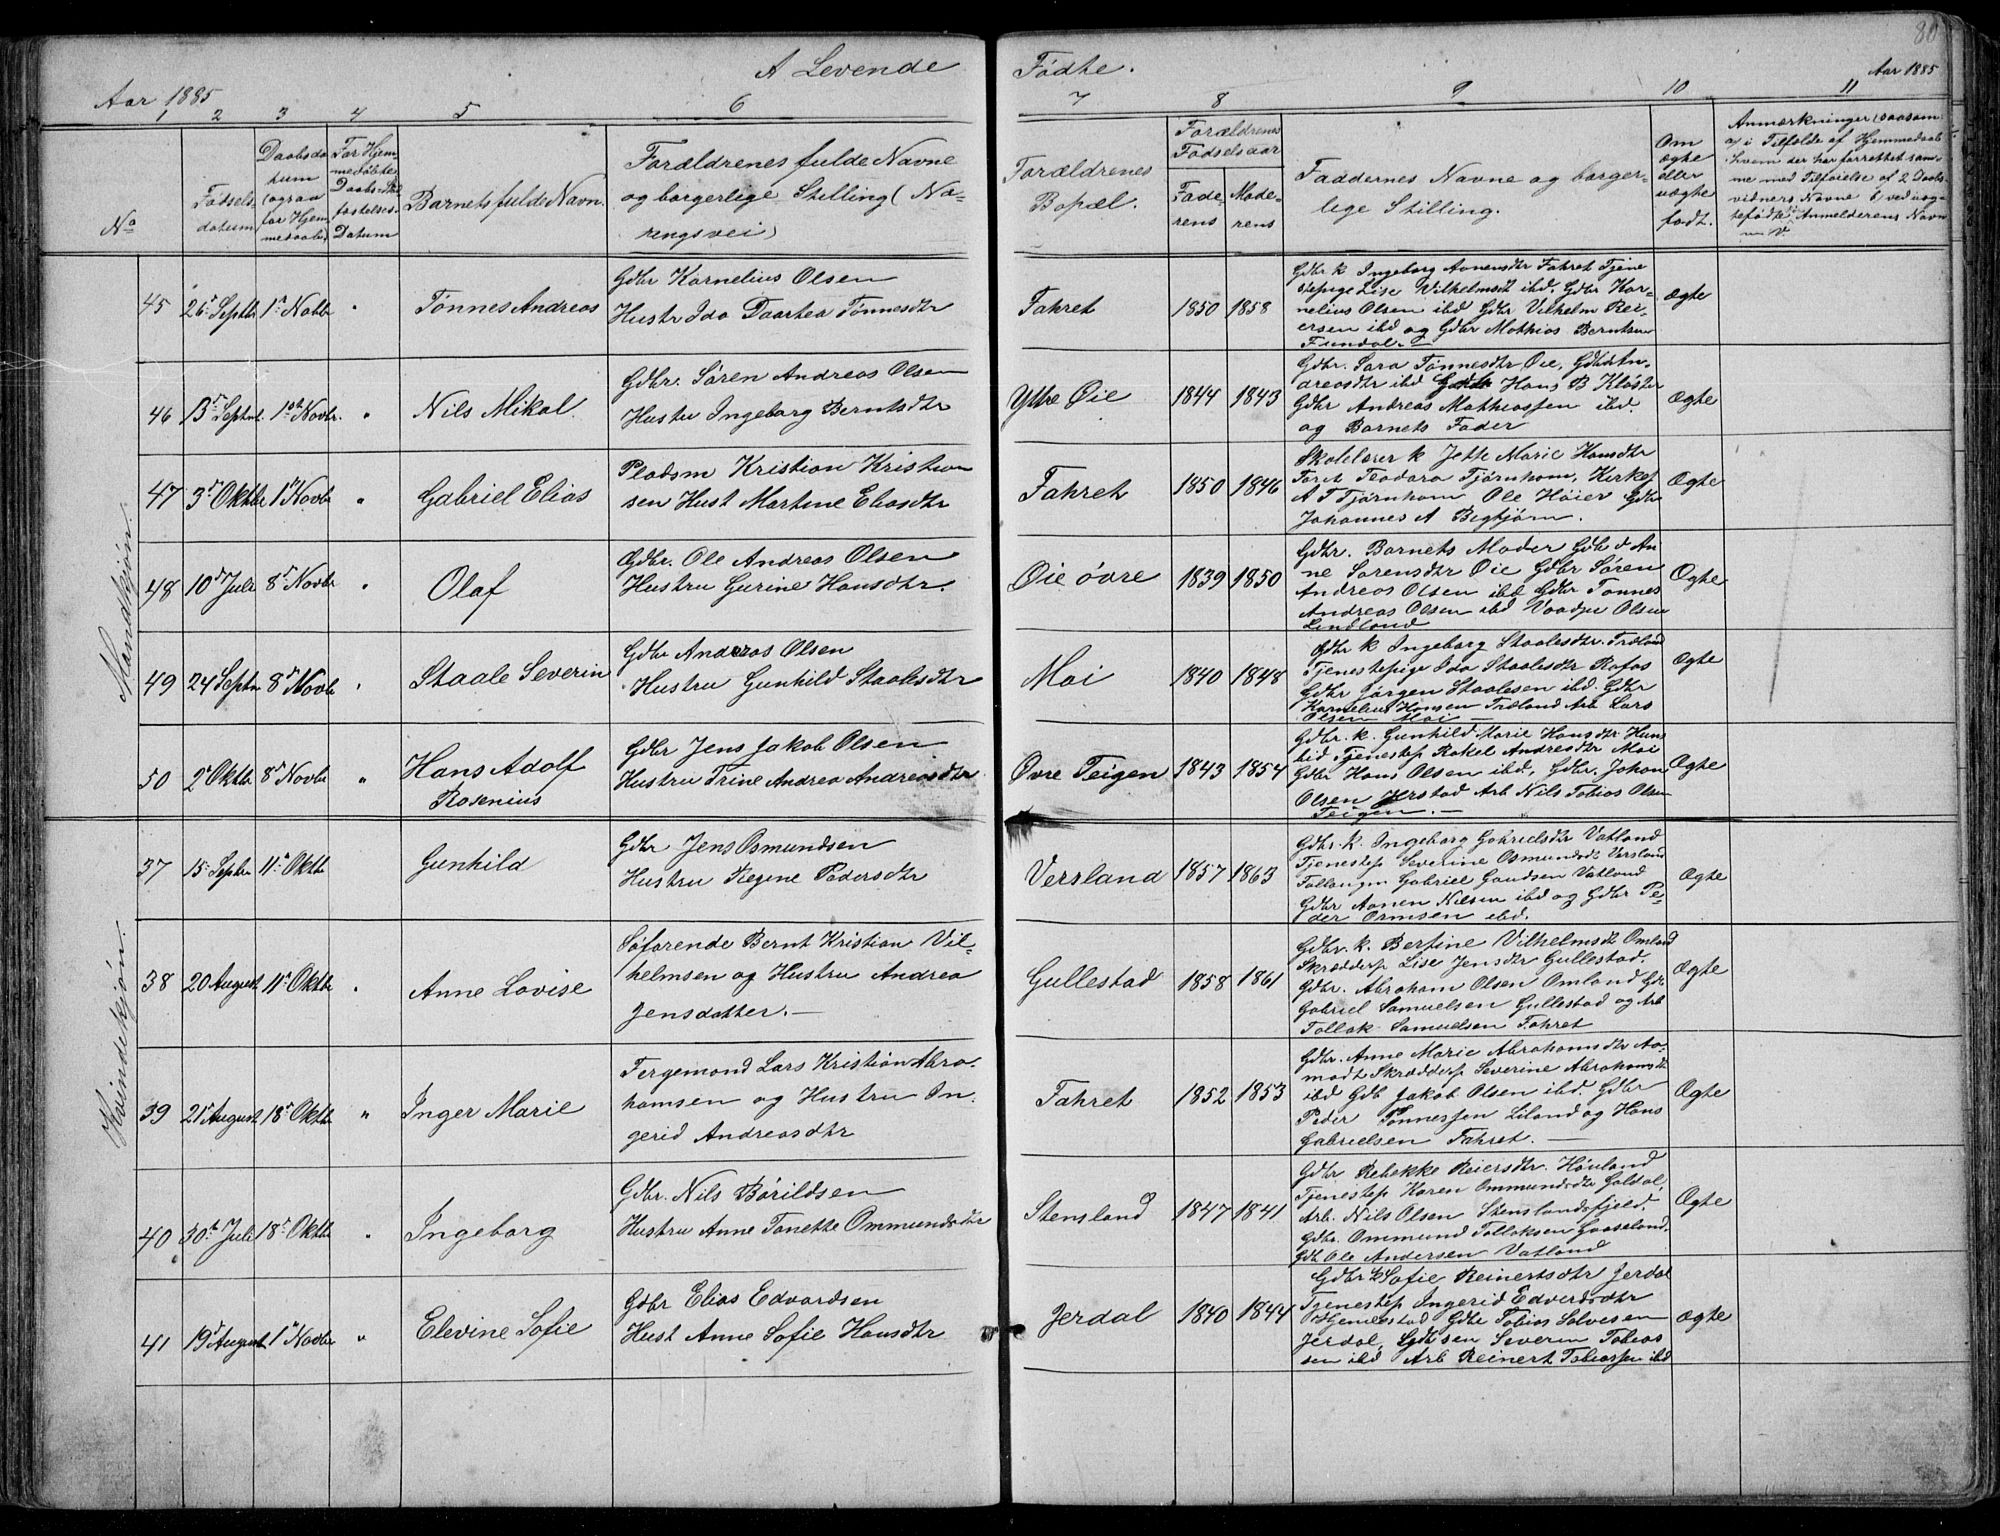 80
A Levende Fødte.
Aar 1885
Aar 1885
1 2 3 4 5 6 7 8 9 10 11
No
Fødsels-
datum
Daabsda
tum
(ograa
for Hjem
medaab)
For Hjem-
medøbte
Daabs
Datum
Barnets fulde Navn.
Forældrenes fulde Navne
og borgerlige Stilling (Næ-
ringsvei)
Forældrenes
Bopæl.
Forældrenes
Fødselsaar
Fade-
rens
Mode-
rens
Faddernes Navne og borger-
lige Stilling.
Om
ægte
eller
uægte
født.
Anmærkninger (saasom
a) i Tilfælde af Hjemmedaab
hvem der har forrettet sam-
me med Tilføielse af 2 Daabs-
vidners Navne b) ved uæg-
tefødte, Anmelderens Navn
m. V.
Mandkjøn.
45 26 Septbr 1 Novbr "
Tønnes Andreas
Gdbr Kornelius Olsen
Hustr Ida Daartea Tønnesdtr
Fahret
1850 1858
Gdbr k Ingeborg Aanensdtr Fahret Tjene
stepige Lise Wilhelmsdt ibd, Gdbr Kor-
nelius Olsen ibd Gdbr Vilhelm Rei-
ersen ibd og Gdbr Mathias Berntsen
Ægte
46 13 Septbr. 1st Novbr. "
Nils Mikal.
Gdbr. Søren Andreas Olsen
Hustru Ingeborg Berntsdtr
Yttre Øie
1844 1843
Gdbr. Sara Tønnesdtr Øie, Gdbrd An-
dreasdtr ibd Hans B Kloster
Gdbr Andreas Mathiassen ibd.
og Barnets Fader
Ægte
47 3 Oktbr 1 Novbr "
Gabriel Elias
Pladsm Kristian Kristian
sen Hust Martine Eliasdtr
Fahret
1850 1846
Skolelærer k Jette Marie Hansdtr
Faret Teodora Tjørnhom, Kirkes
A T Tjørnhom Ole Høier Gdbr
Johannes A Begtjørn.
Ægte
48 10 Juli 8 Novbr "
Olaf
Gdbr. Ole Andreas Olsen
Hustru Gurine Hansdtr.
Øie øvre
1839 1850
Gdbr. Barnets Moder Gdb d An-
ne Sørensdtr Øie Gdbr Søren
Andreas Olsen ibd Gdbr Tønnes
Andreas Olsen ibd Olsen
Lindland
Ægte
49 24 Septbr 8 Novbr "
Staale Severin
Gdbr Andreas Olsen
Hustru Gunhild Staalesdtr
Moi
1840 1848
Gdbr k Ingeborg Staalesdtr. Træland
Tjenestepige Ida Staalesdtr Rafos
Gdbr Jørgen Staalesen ibd. Gdbr
Kornelius Hansen Træland Arb Lars
Olsen Moi —
Ægte
50 2 Oktbr 8 Novbr "
Hans Adolf
Rosenius
Gdbr Jens Jakob Olsen
Hustru Trine Andrea Andreasdtr.
Øvre Teigen
1843 1854
Gdbr. k. Gunhild Marie Hansdtr
Tjenestep Rakel Andreasdtr Moi
Gdbr Hans Olsen ibd, Gdbr. Johan
Olsen Arb Nils Tobias Olsen
Teigen. —
Ægte
Kvindekjøn.
37 15 Septbr 11 Oktbr
Gunhild
Gdbr Jens Osmundsen
Hustru Regine Pedersdtr
Versland
1857 1863
Gdbr. k. Ingeborg Gabrielsdtr Vatland
Tjenestep Severine Osmundsdt Versland
Gabriel Vatland
Gdbr Aanen Nilsen ibd og Gdbr Pe-
der Ormsen ibd.
Ægte
38 20 August 11 Oktbr "
Anne Lovise
Søfarende Bernt Kristian Vil-
helmsen og Hustru Andrea
Jensdatter. —
Gullestad
1858 1861
Gdbr. k. Bertine Vilhelmsdt Omland
Skrædderp Lise Jensdtr Gullestad.
Gdbr. Abraham Olsen Omland Gdr
Gabriel Samuelsen Gullestad og Arb
Tollak Samuelsen Fahret
Ægte
39 21 August 18 Oktbr "
Inger Marie
Fergemand Lars Kristian Abra-
hamsen og Hustru In-
gerid Andreasdtr
Fahret
1852 1853
Gdbr. Anne Marie Abrahamsdtr Aa-
modt Skrædderp Severine Abrahamsdt
ibd Gdb Jakob Olsen ibd. Gdbr
Peder Tønnessen Liland og Hans
Gabrielsen Fahret. —
Ægte
40 30 Juli 18 Oktbr "
Ingeborg
Gdbr. Nils Børildsen
Hustru Anne Tonette Ommundsdtr
Stensland
1847 1841
Gdbr Rebekke Reiersdtr. Høiland
Tjenestep Karen Ommundsdtr
Arb. Nils Olsen Stenslandsfjeld.
Gdbr. Ommund Tollaksen Gaaseland.
Gdb Ole Andersen Vatland
Ægte
41 19 August 1 Novbr "
Elevine Sofie
Gdbr Elias Edvardsen
Hust Anne Sofie Hansdtr
Jerdal
1840 1844
Gdbr k Sofie Reinertsdtr Jerdal
Tjenestep Ingerid Edvardsdtr
Gdbr Tobias Salvesen
Jerdal, Gdbr sen Severin Tobias
sen ibd Arb Reinert Tobiassen ibd
Ægte